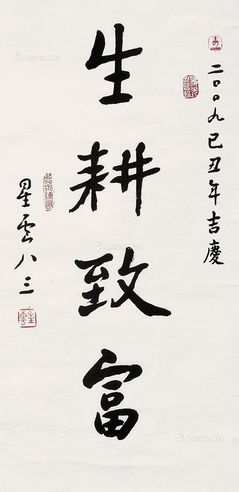 二〇〇九己丑年吉慶
生耕致富
星雲八三